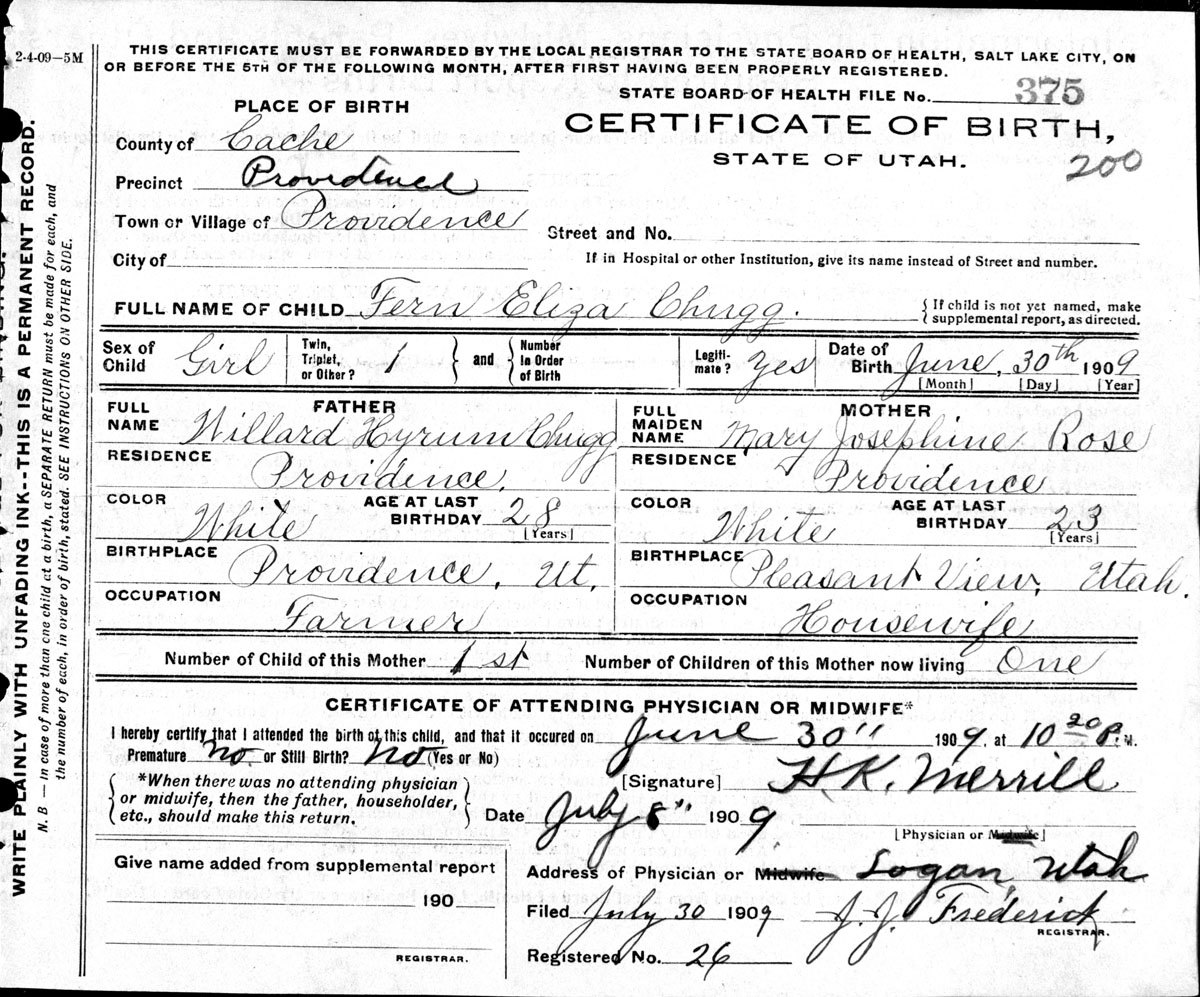 2-4-09—5M
THIS CERTIFICATE MUST BE FORWARDED BY THE LOCAL REGISTRAR TO THE STATE BOARD OF HEALTH, SALT LAKE CITY, ON
OR BEFORE THE 5TH OF THE FOLLOWING MONTH, AFTER FIRST HAVING BEEN PROPERLY REGISTERED.
STATE BOARD OF HEALTH FILE No. 375
PLACE OF BIRTH
CERTIFICATE OF BIRTH,
STATE OF UTAH.
200
County of Cache
Precinct Providence
Town or Village of Providence
Street and No.
City of
If in Hospital or other Institution, give its name instead of Street and number.
FULL NAME OF CHILD Fern Eliza Chugg.
{If child is not yet named, make
supplemental report, as directed.
Sex of Child Girl
Twin, Triplet, or Other? 1
and
Number in Order of Birth
Legiti-mate? Yes
Date of Birth June, 30th 1909
[Month] [Day] [Year]
FATHER
FULL NAME Willard Hyrum Chugg
RESIDENCE Providence.
COLOR White
AGE AT LAST BIRTHDAY 28
[Years]
BIRTHPLACE Providence, Ut.
OCCUPATION Farmer
MOTHER
FULL MAIDEN NAME Mary Josephine Rose
RESIDENCE Providence
COLOR White
AGE AT LAST BIRTHDAY 23
[Years]
BIRTHPLACE Pleasant View, Utah.
OCCUPATION Housewife
Number of Child of this Mother 1st
Number of Children of this Mother now living One
CERTIFICATE OF ATTENDING PHYSICIAN OR MIDWIFE*
I hereby certify that I attended the birth of this child, and that it occured on June 30" 1909, at 10 20 P. M.
Premature No. or Still Birth? No (Yes or No)
*When there was no attending physician
or midwife, then the father, householder,
etc., should make this return.
[Signature] H K. Merrill
Date July 8" 1909.
[Physician or Midwife]
Give name added from supplemental report
190
REGISTRAR.
Address of Physician or Midwife Logan, Utah
Filed July 30 1909 J. J. Frederick
REGISTRAR.
Registered No. 26
WRITE PLAINLY WITH UNFADING INK--THIS IS A PERMANENT RECORD.
N. B — In case of more than one child at a birth, a SEPARATE RETURN must be made for each, and
the number of each, in order of birth, stated. SEE INSTRUCTIONS ON OTHER SIDE.